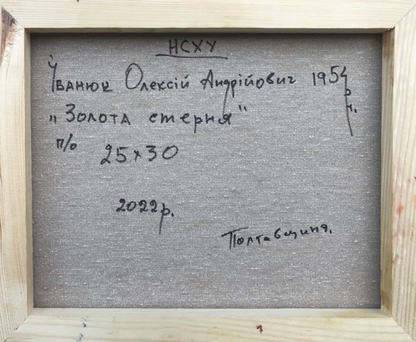 НСХУ
Іванюк Олексій Андрійович 1954 р.н.
„Золота стерня"
п/о 25x30
2022р.
Полтавщина.